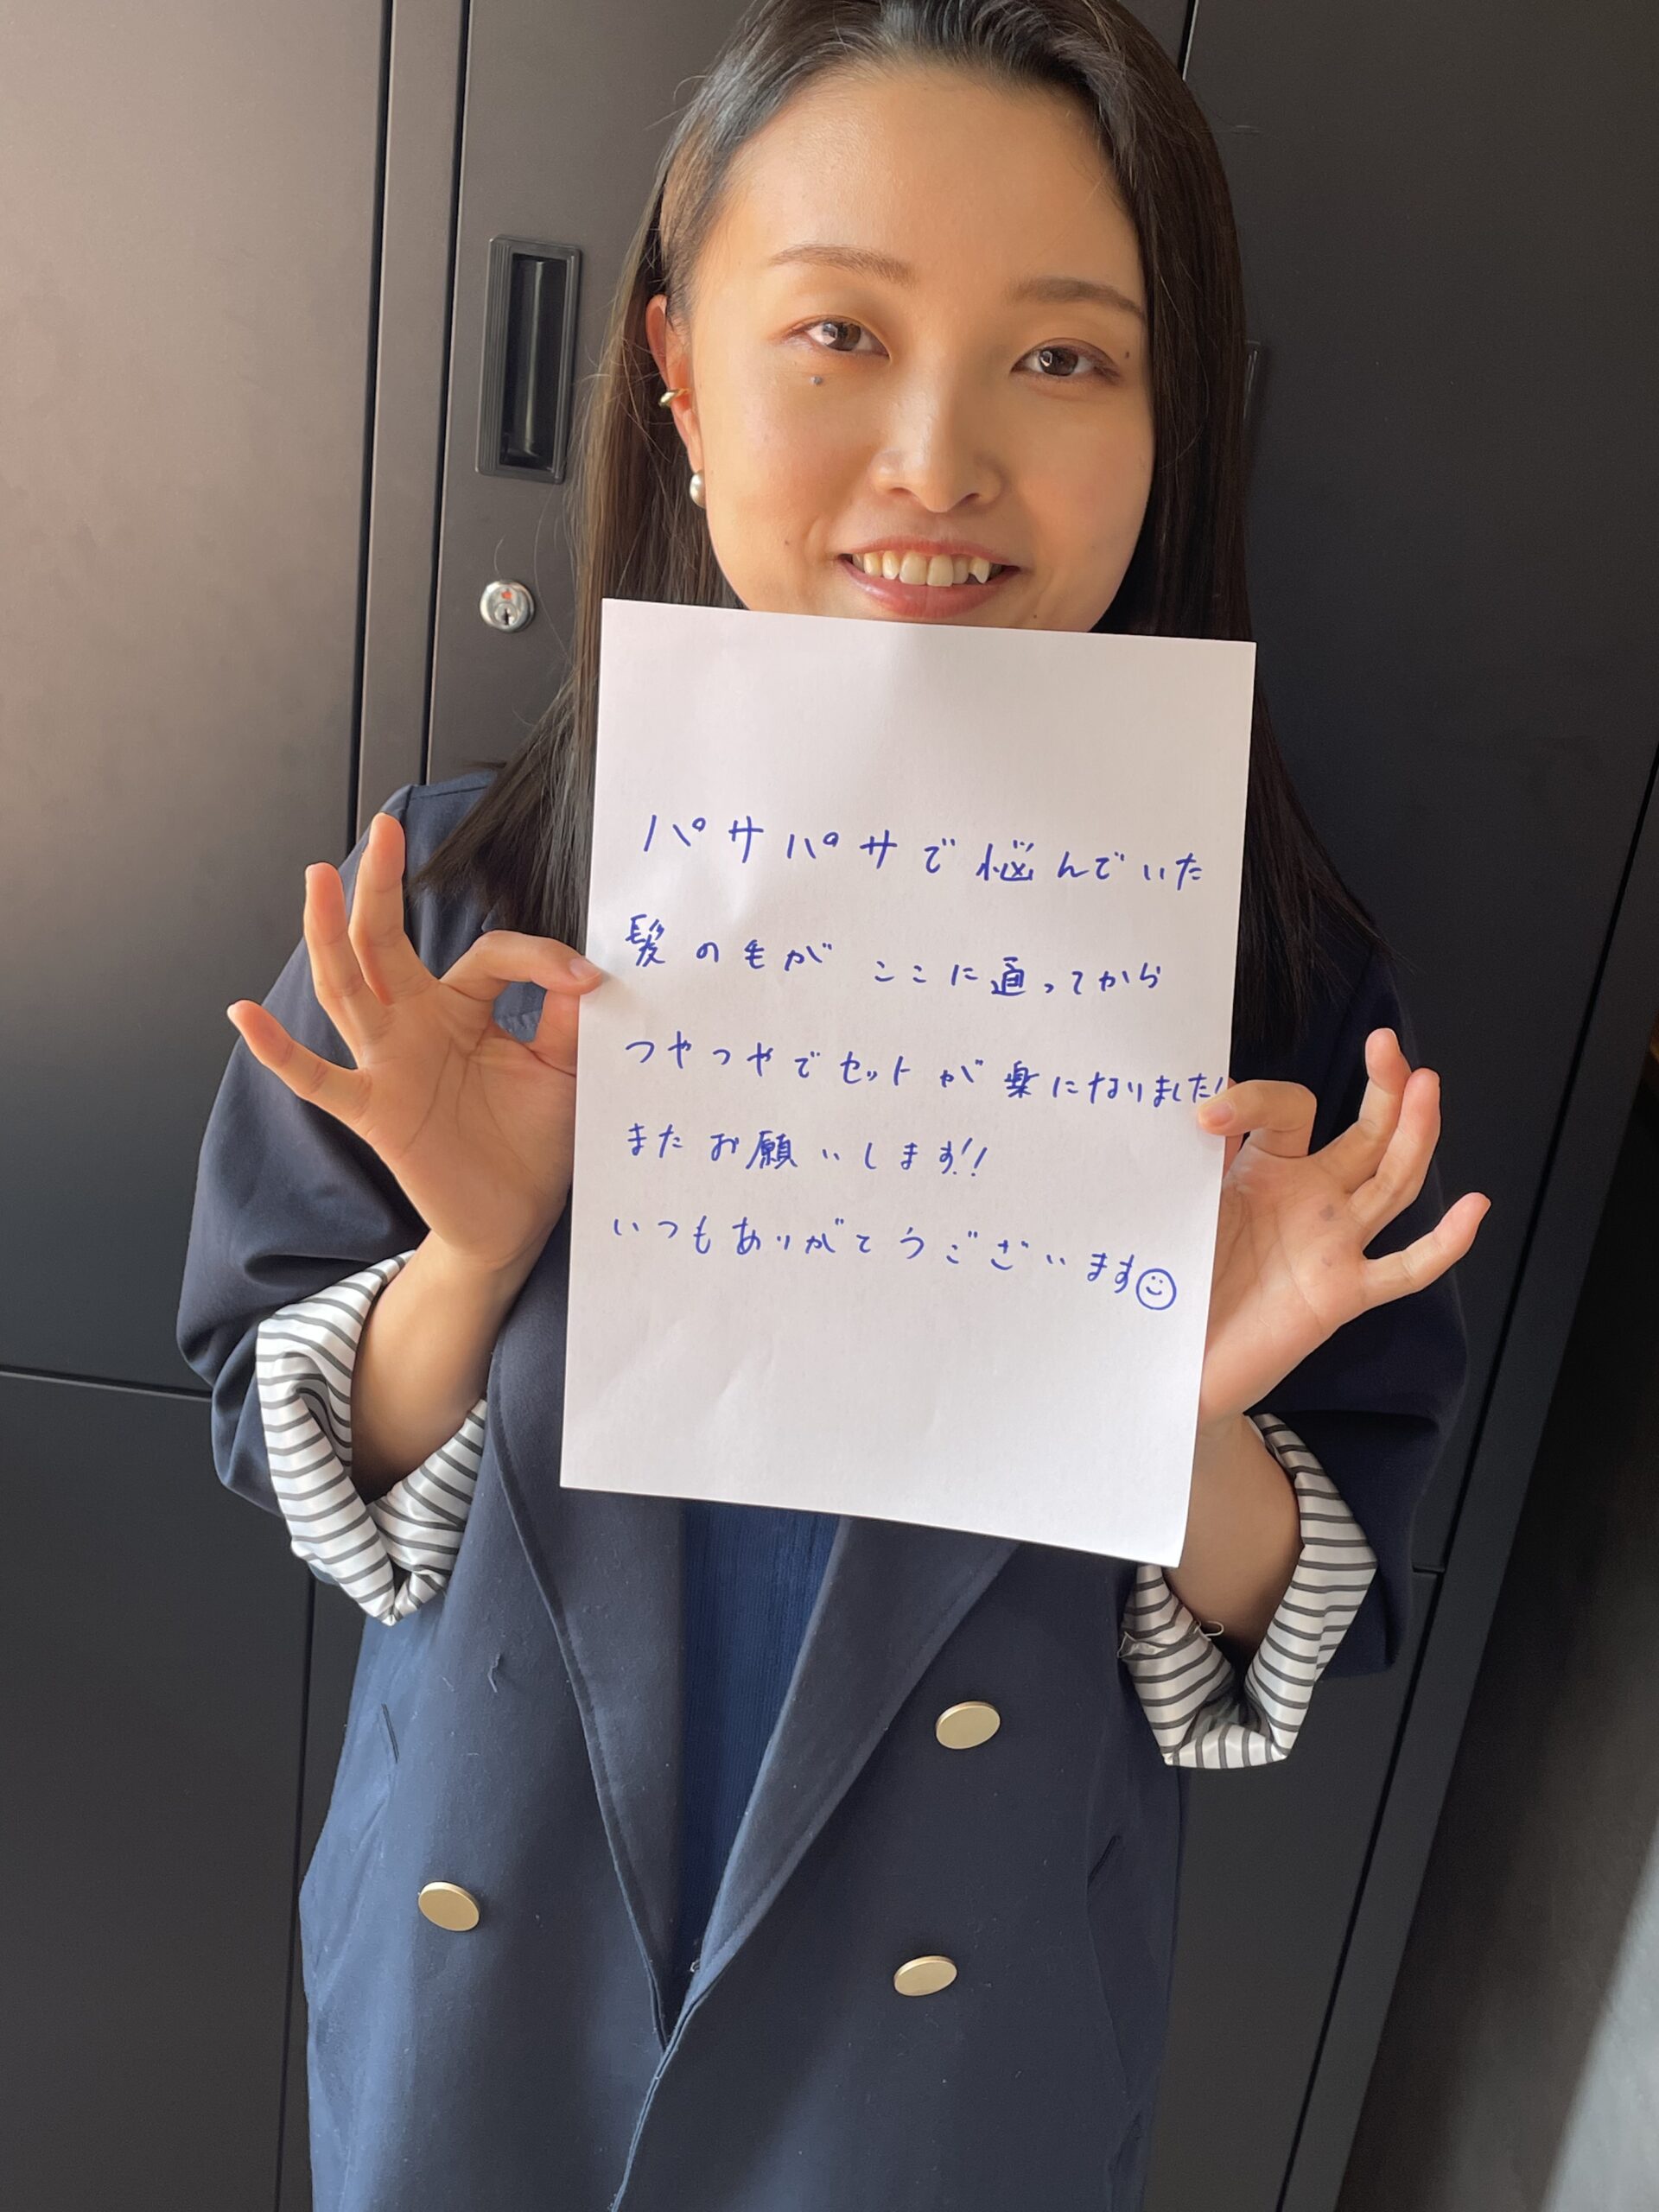 パサパサで悩んでいた
髪の毛が ここに通ってから
つやつやでセットが楽になりました!
またお願いします!!
いつもありがとうございます☺